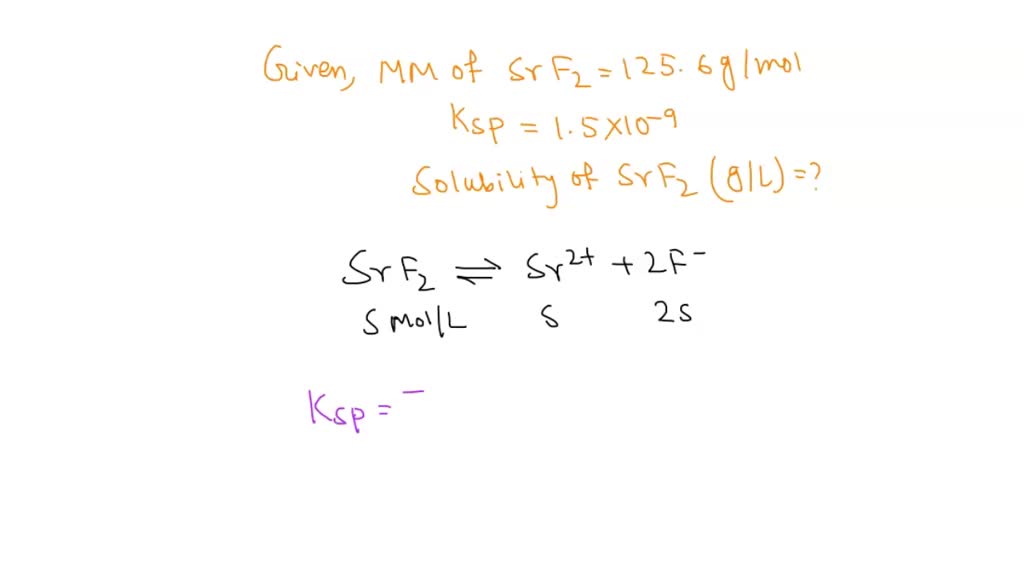 Given, MM of SrF₂ = 125.6g/mol
Ksp = 1.5X10⁻⁹
Solubility of SrF₂ (g/L) = ?
SrF₂ ⇌ Sr²⁺ + 2F⁻
S mol/L S 2S
Ksp =